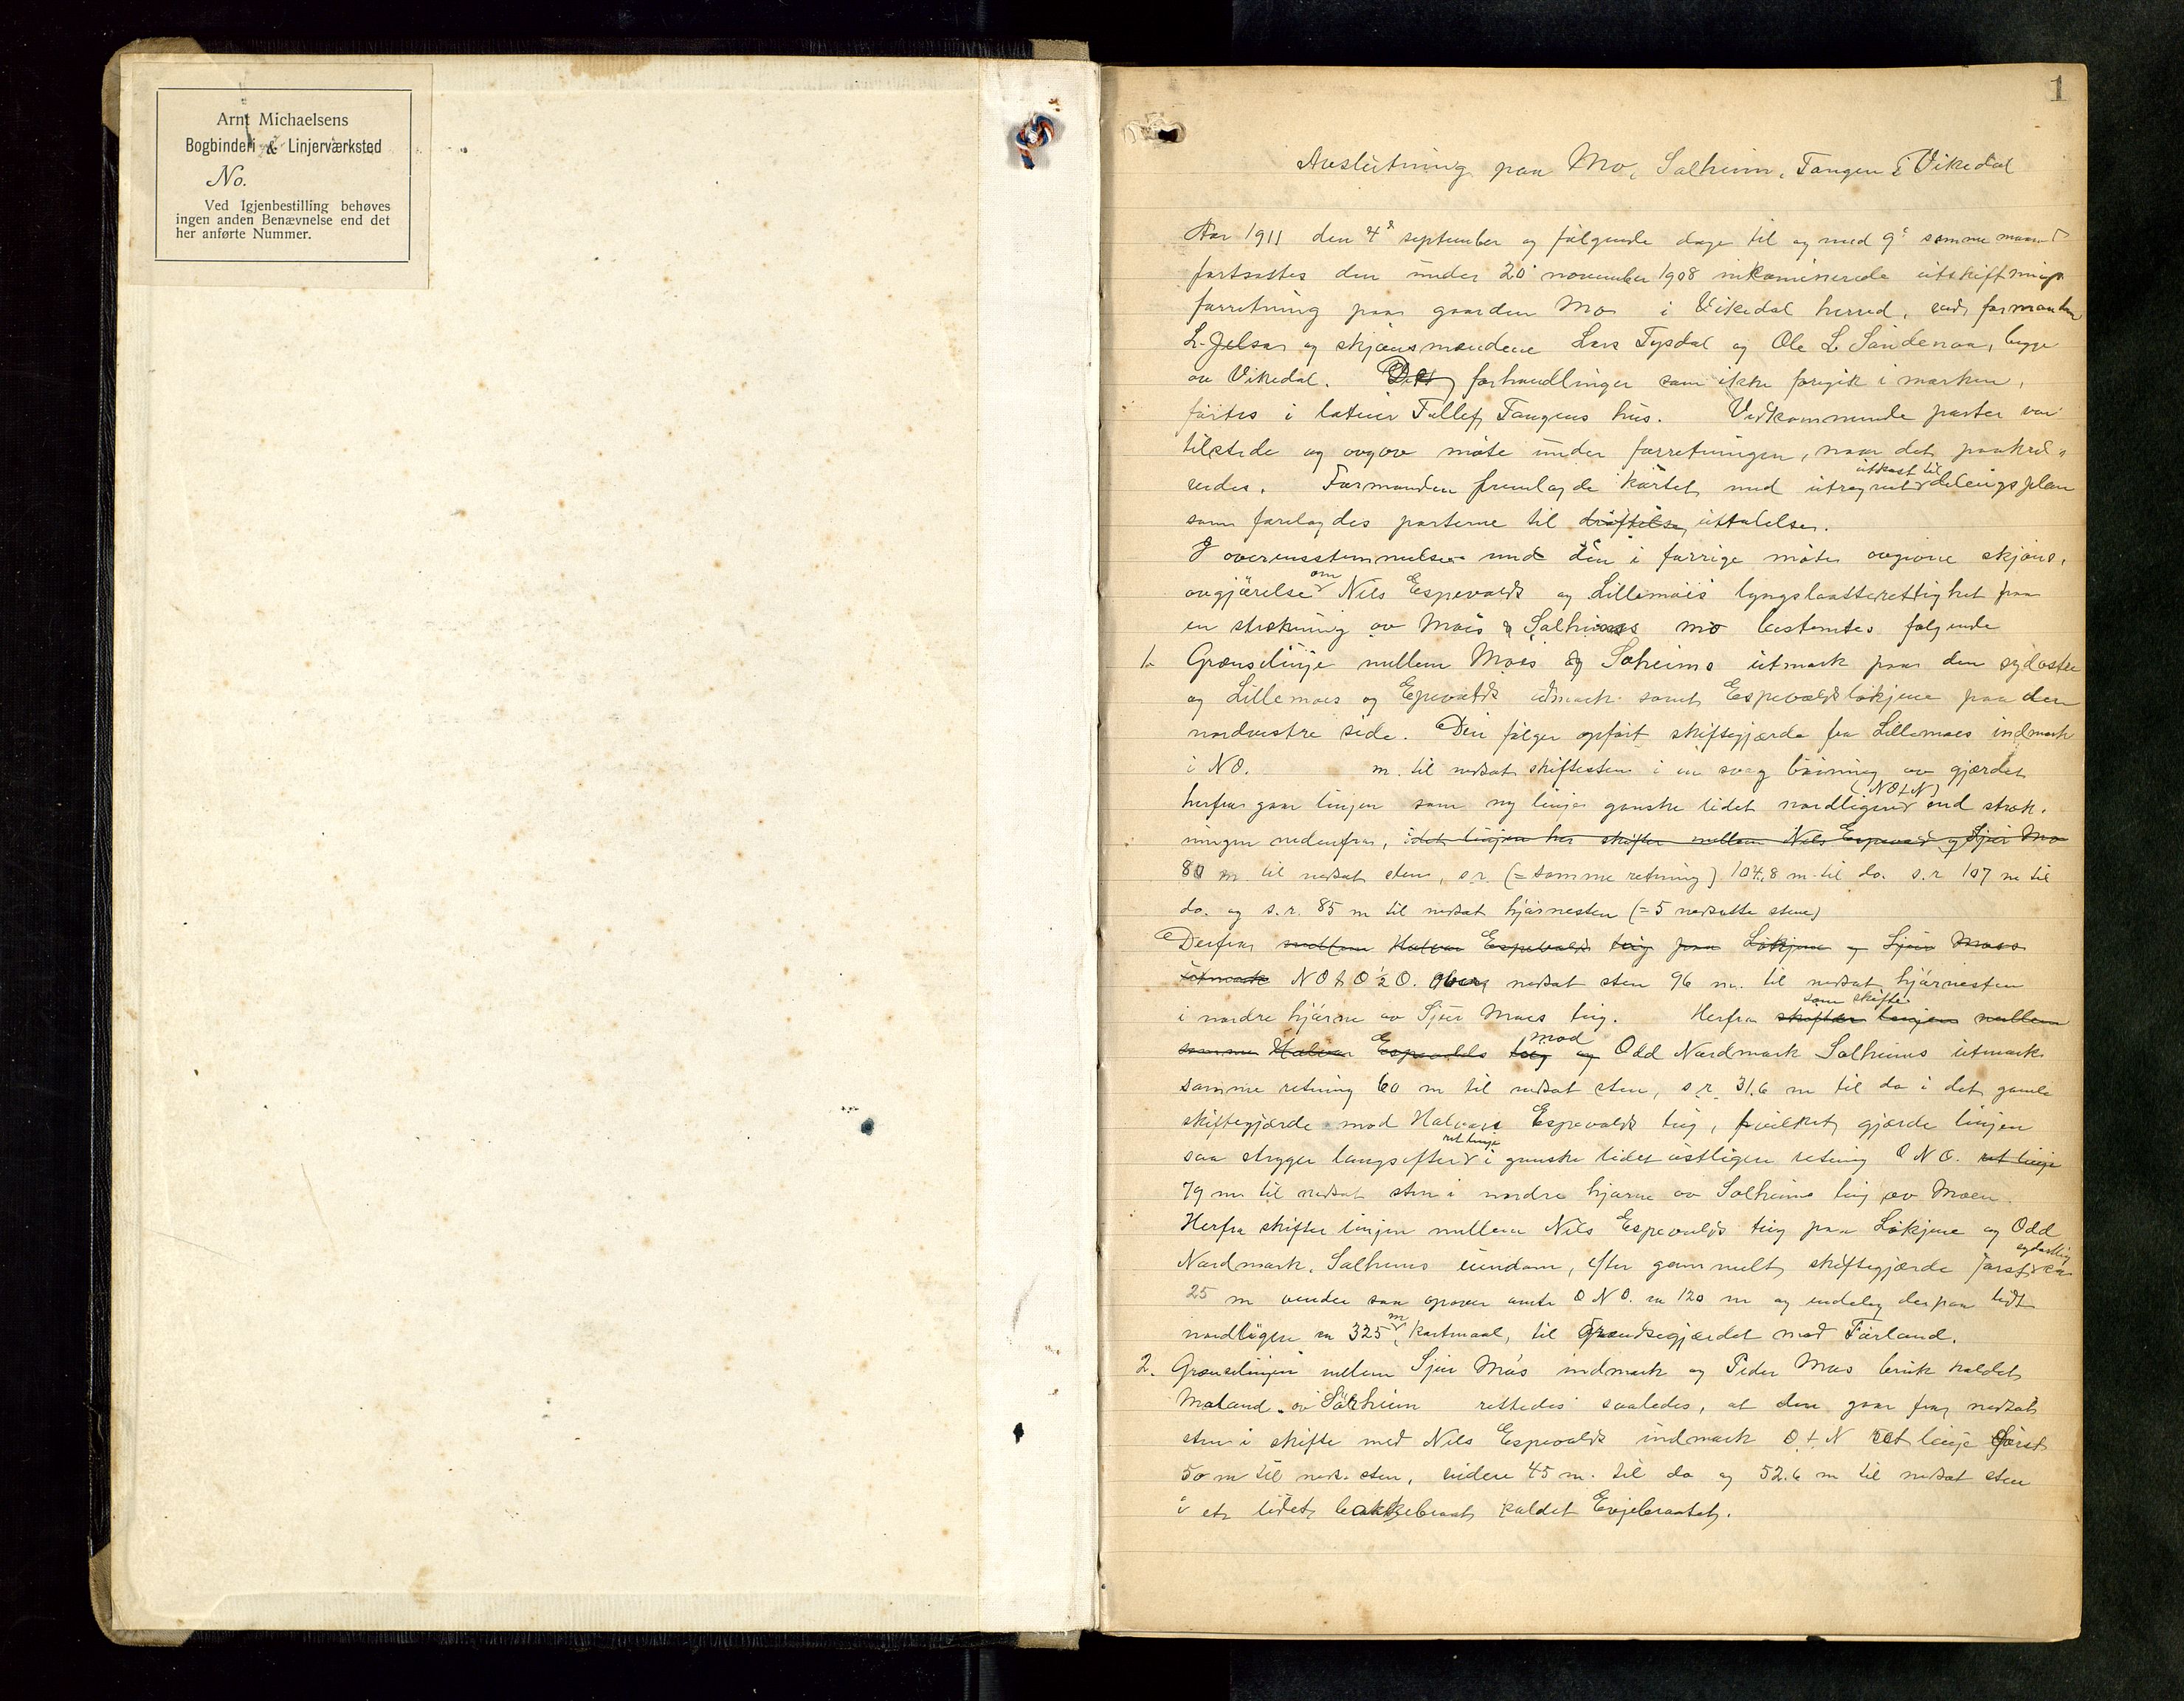 Arnt Michaelsens
Bogbinderi & Linjerværksted
No.
Ved Igjenbestilling behøves
ingen anden Benævnelse end det
her anførte Nummer.
1
Avslutning paa Mo, Salheim, Tangen i Vikedal
Aar 1911 den 4de september og følgende dage til og med 9de samme maaned
fortsattes den under 20 november 1908 inkaminerede utskiftnings
forretning paa gaarden Mo i Vikedal herred, ved formanden
L. Jelsa og skjønsmændene Lars Tysdal og Ole L. Sandenaa, begge
av Vikedal. De forhandlinger som ikke foregik i marken,
førtes i Tollef Tangens hus. Vedkommende parter var
tilstede og avgav møte under forretningen, naar det paakræ-
vedes. Formanden fremlagde kartet med utregnet utkast til delingsplan
som forelagdes parterne til drøftelse, uttalelse.
I overensstemmelse med den i forrige møte avgivne skjøns-
avgjørelse om Nils Espevolds og Lillemois lyngslaatterettighet paa
en strekning av Mois & Salheims mo bestemtes følgende
1. Grænselinje mellem Mois og Soheims utmark paa den sydøstre
og Lillemoes og Epevolds utmark samt Espevolds løkjene paa den
nordvestre side. Den følger opført skiftegjærde fra Lillemoes indmark
i NO. m. til nedsat skiftesten i en svag bøining av gjærdet
herfra gaar linjen som ny linje ganske lidet nordligere (NOtN) end stræk-
ningen nedenfra, idet linjen her skifter mellem Nils Espevold og Sjur Mo
80 m til nedsat sten, s.r. (= samme retning) 104.8 m til do. s.r 107 m til
do. og s.r. 85 m til nedsat hjørnesten (= 5 nedsatte stene)
Derfra mellem Halvar Espevolds teig paa Løkjene og Sjur Moes
utmark NOtO½O. nedsat sten 96 m. til nedsat hjørnesten
i nordre hjørne av Sjur Moes teig. Herfra som skifte skifter linjen mellem
samme Halvar Espevolds teig og mod Odd Nordmark Salheims utmark
samme retning 60 m til nedsat sten, s.r. 31.6 m til do i det gamle
skiftegjærde mod Halvars Espevolds teig, hvilket gjærde linjen
saa stryger langsefter ret linje i ganske lidet østligere retning ONO. ret linje
79 m til nedsat sten i nordre hjørne av Solheims teig av Moen.
Herfra skifter linjen mellem Nils Espevolds teig paa Løkjene og Odd
Nordmark, Salheims eiendom, efter gammelt skiftegjærde først sydøstlig ca
25 m vender saa opover omtr ONO. ca 120 m og endelig derpaa lidt
nordligere ca 325 m, kartmaal, til Grændsegjærdet mod Førland.
2. Grænselinjen mellem Sjur Mo's indmark og Peder Moes bruk kaldet
Moland av Sørheim rettedes saaledes, at den gaar fra nedsat
sten i skifte med Nils Espevolds indmark OtN ret linje først
50 m til neds. sten, videre 45 m. til do og 52.6 m til nedsat sten
i et lidet bakkebraat kaldet Evjebraatet.